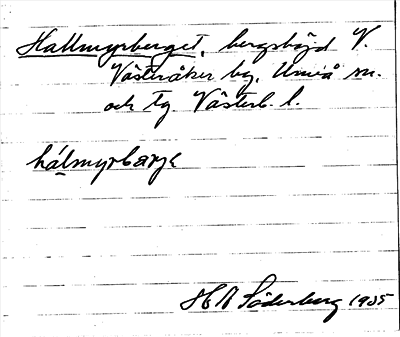 Hallmyrberget, bergshöjd V.
Västeråker by, Umeå sn.
och tg Västerb. l.
hálmyrbærjə
H A Söderberg 1935